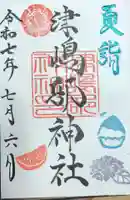 夏詣
津嶋部神社
令和七年七月六日